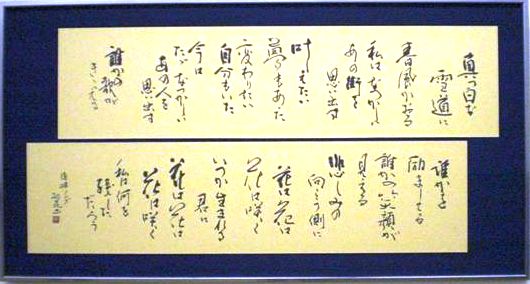 真っ白な
雪道に
春風かおる
私はなつかしい
あの街を
思い出す
叶えたい
夢もあった
変わりたい
自分もいた
今は
ただなつかしい
あの人を
思い出す
誰かの歌が
きこえる
誰かを
励ましてる
誰かの笑顔が
見える
悲しみの
向こう側に
花は花は
花は咲く
いつか生まれる
君に
花は花は
花は咲く
私は何を
残した
だろう